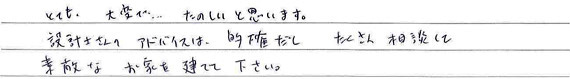 とても、大変で… たのしいと思います。
設計士さんの アドバイスは、的確だし たくさん 相談して
素敵な お家を 建てて 下さい。